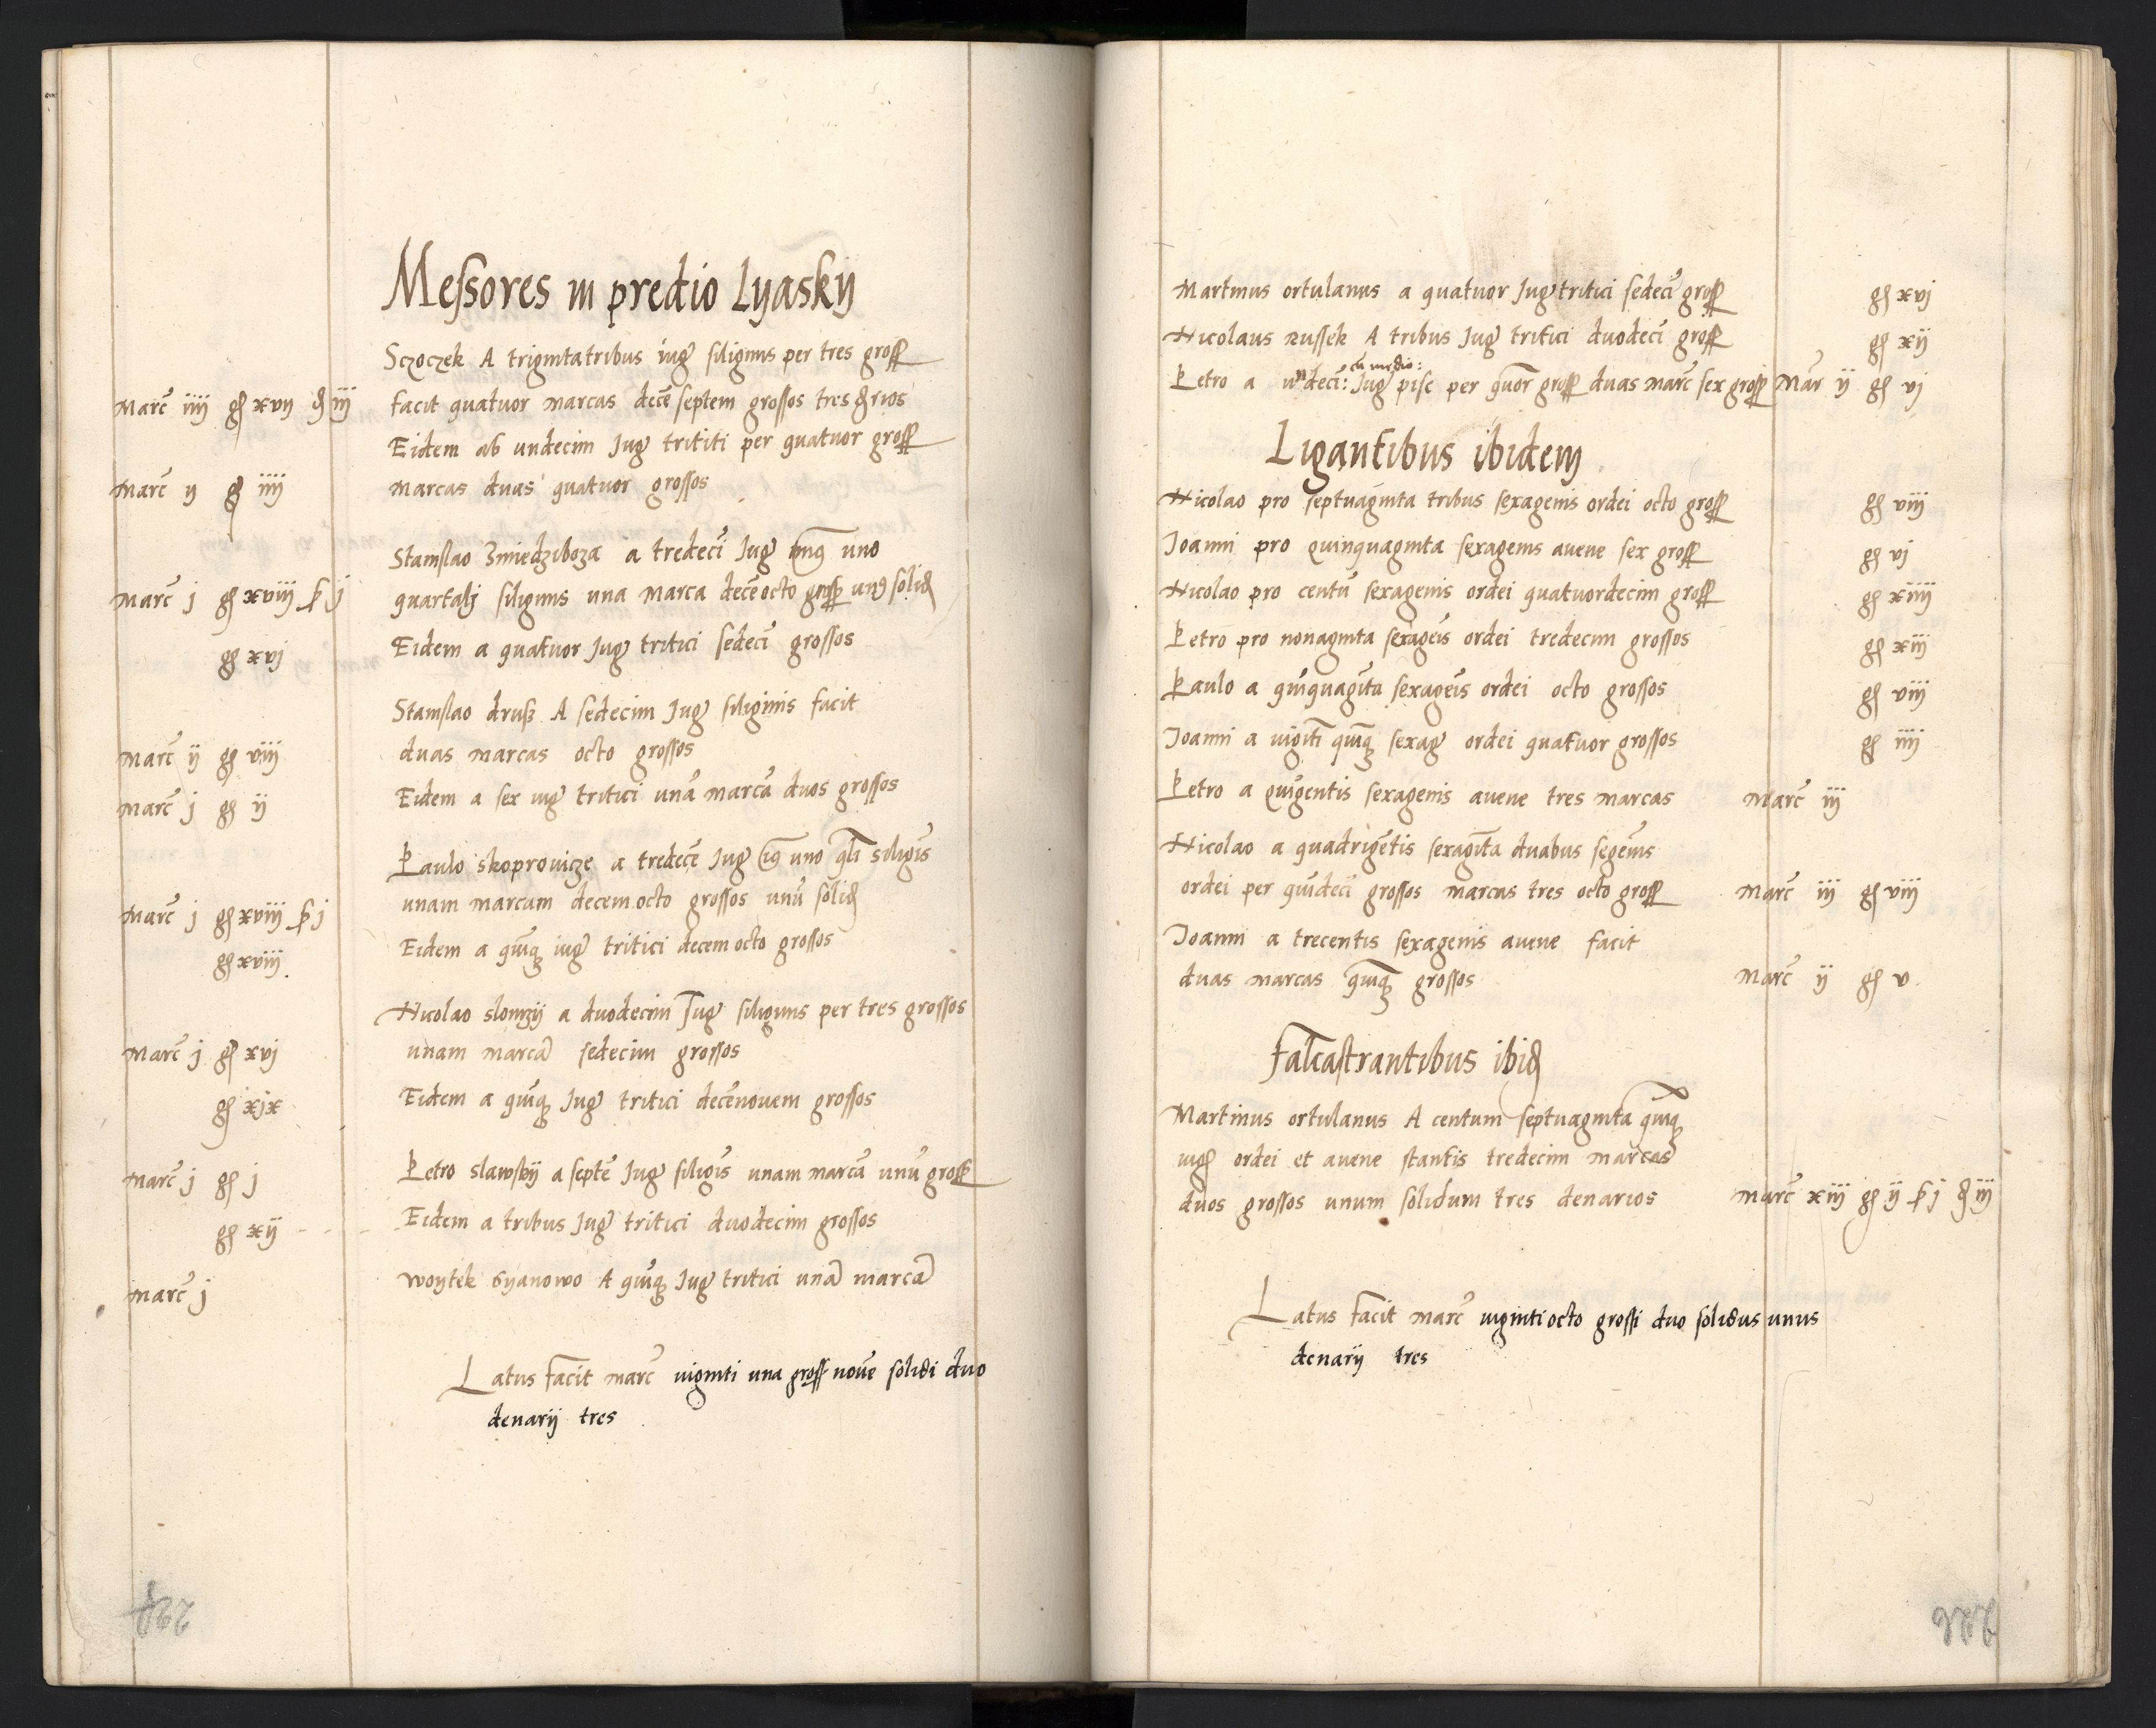 Messores in predio Lyaskÿ
Sczoczek A trigintatribus iug siliginis per tres gross
Marc̃ iiij gř xvij đ iij facit quatuor marcas decẽ septem grossos tres đrios
Eidem ab undecim Jug trititi per quatuor gross
Marc̃ ij gř iiij marcas duas quatuor grossos
Stanislao Zmiedziboza a tredecĩ Jug uno
Marc̃ j gř xviij ẜ j quartalj siliginis una marca decẽocto gross solid
gř xvj Eidem a quatuor Jug tritici sedecĩ grossos
Stanislao druss A sedecim Jug siliginis facit
Marc̃ ij gř viij duas marcas octo grossos
Marc̃ j gř ij Eidem a sex iug tritici unã marcã duos grossos
Paulo skoprovicze a tredecẽ Jug uno qlĩ siligĩs
Marc̃ j gř xviij ẜ j unam marcam decem octo grossos unũ solid
gř xviij Eidem a quĩq iug tritici decem octo grossos
Nicolao slomzÿ a duodecim Jug siliginis per tres grossos
Marc̃ j gř xvj unam marcã sedecim grossos
gř xjx Eidem a quĩq Jug tritici decẽnovem grossos
Marc̃ j gř j Petro slawskÿ a septẽ Jug siligĩs unam marcã unũ gross
gř xij Eidem a tribus Jug tritici duodecim grossos
Marc̃ j Woytek Gyanowo A quĩq Jug tritici unã marcã
Latus facit marc̃ viginti una gross novẽ solidi duo
denarij tres
Martinus ortulanus a quatuor Jug tritici sedecĩ gross gř xvj
Nicolaus Russek A tribus Jug tritici duodecĩ gross gř xij
cũ medio:
Petro a undecĩ: Jug pisc per quor gross duas marc̃ sex gross Mar ij gř vj
Ligantibus ibidem
Nicolao pro septuaginta tribus sexagenis ordei octo gross gř viij
Joanni pro quinquaginta sexagenis avene sex gross gř vj
Nicolao pro centũ sexagenis ordei quatuordecim gross gř xiiij
Petro pro nonaginta sexagẽis ordei tredecim grossos gř xiij
Paulo a quĩquagĩta sexagẽis ordei octo grossos gř viij
Joanni a vigĩti quĩq sexag ordei quatuor grossos gř iiij
Petro a quĩgentis sexagenis avene tres marcas Marc̃ iij
Nicolao a quadrigẽtis sexagĩta duabus segẽnis
ordei per quĩdecĩ grossos marcas tres octo gross Marc̃ iij gř viij
Joanni a trecentis sexagenis avene facit
duas marcas quĩq grossos Marc̃ ij gř v
Falcastrantibus ibid
Martinus ortulanus A centum septuaginta quĩq
iug ordei et avene stantis tredecim marcas
duos grossos unum solidum tres denarios Marc̃ xiij gř ij ẜ j đ iij
Latus facit marc̃ viginti octo grossi duo solidus unus
denarij tres